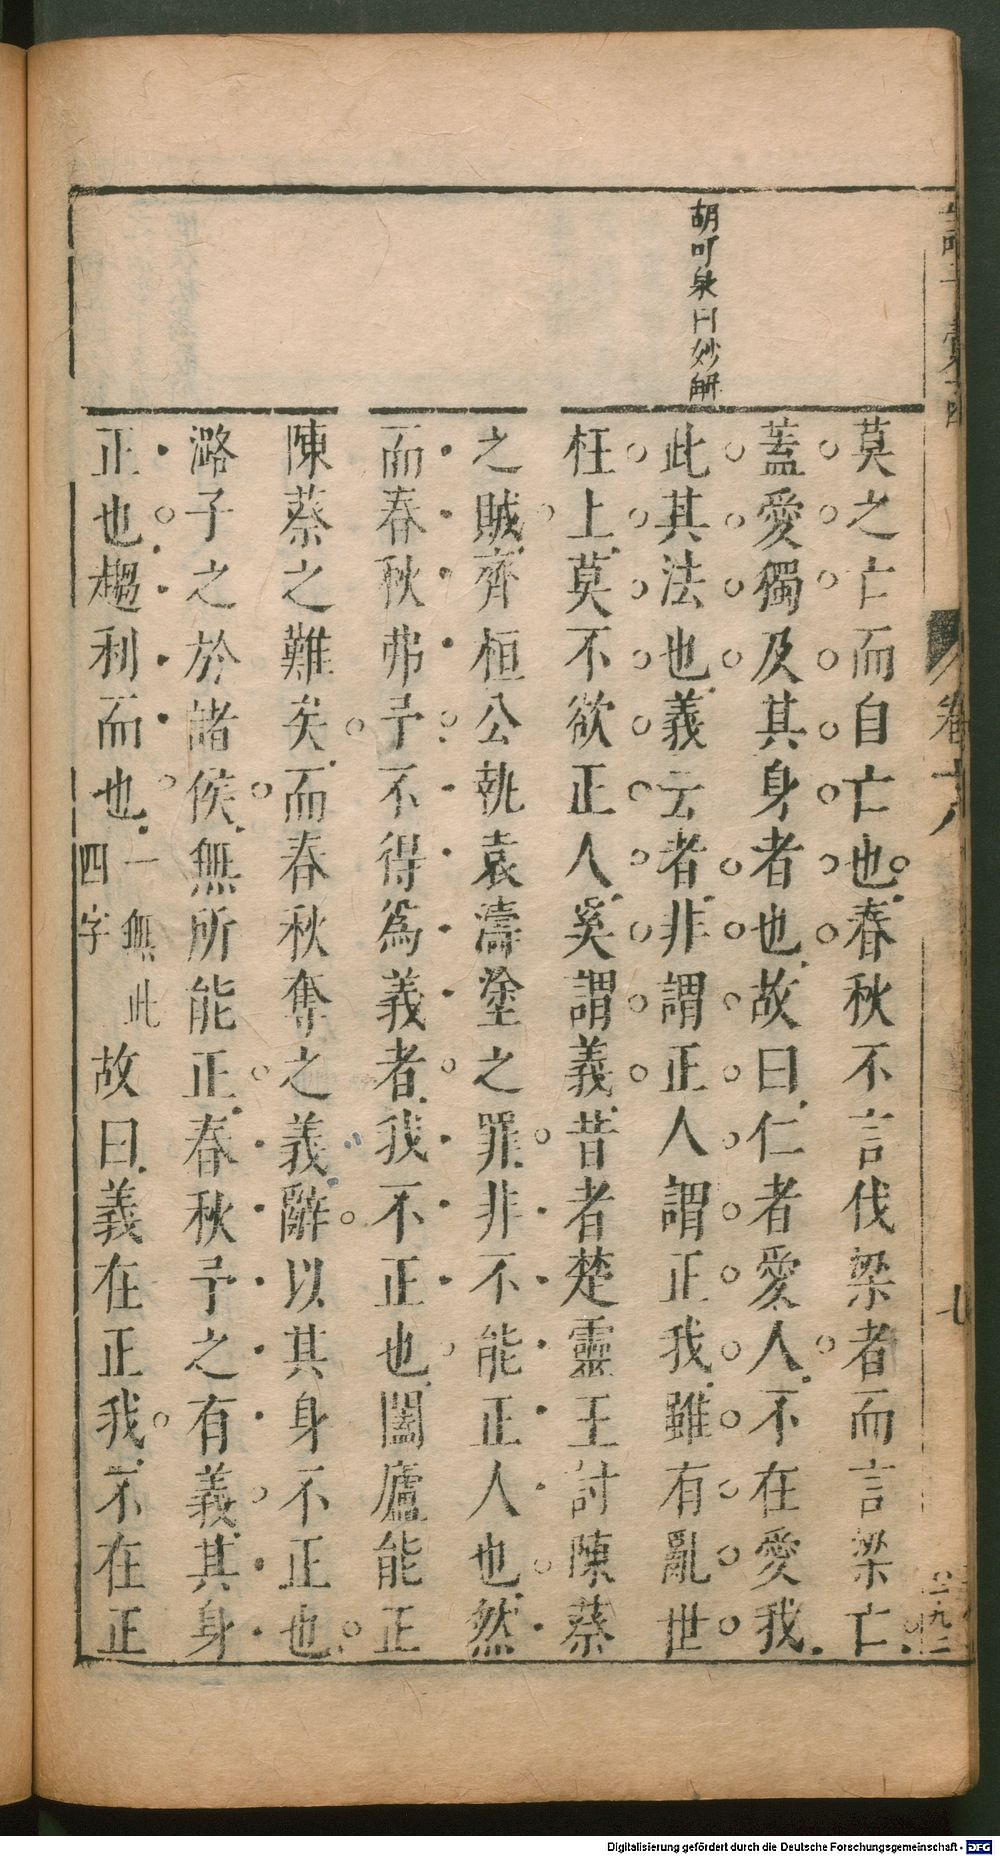 胡可泉曰妙解
莫之亡而自亡也春秋不言伐梁者而言梁亡
蓋愛獨及其身者也故曰仁者愛人不在愛我
此其法也義云者非謂正人謂正我雖有亂世
枉上莫不欲正人奚謂義昔者楚靈王討陳蔡
之賊齊桓公執袁濤塗之罪非不能正人也然
而春秋弗予不得為義者我不正也闔廬能正
陳蔡之難矣而春秋奪之義辭以其身不正也
潞子之於諸侯無所能正春秋予之有義其身
正也趨利而也一無此四字故曰義在正我不在正
卷六
七
Digitalisierung gefördert durch die Deutsche Forschungsgemeinschaft - DFG